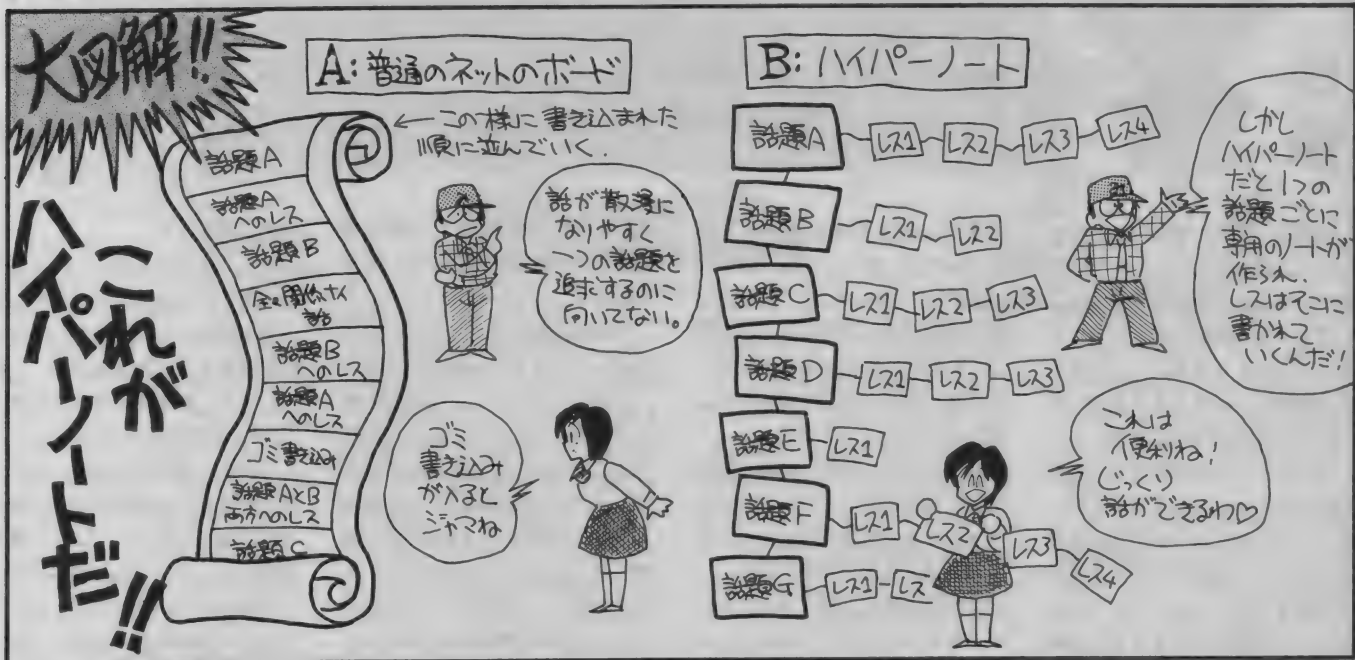 大図解!!
これが
ハイパーノートだ!!
A:普通のネットのボード
←この様に書き込まれた
順に並んでいく.
話題A
話題A
へのレス
話題B
全く関係ナイ
話
話題B
へのレス
話題A
へのレス
ゴミ書き込み
話題AとB
両方へのレス
話題C
話が散漫に
なりやすく
一つの話題を
追求するのに
向いてない。
ゴミ
書き込み
が入ると
ジャマね
B:ハイパーノート
話題A レス1 レス2 レス3 レス4
話題B レス1 レス2
話題C レス1 レス2 レス3
話題D レス1 レス2 レス3
話題E レス1
話題F レス1 レス2 レス3 レス4
話題G レス1 レス
しかし
ハイパーノート
だと1つの
話題ごとに
専用のノートが
作られ、
レスはそこに
書かれて
いくんだ!
これは
便利ね!
じっくり
話ができるわ♡